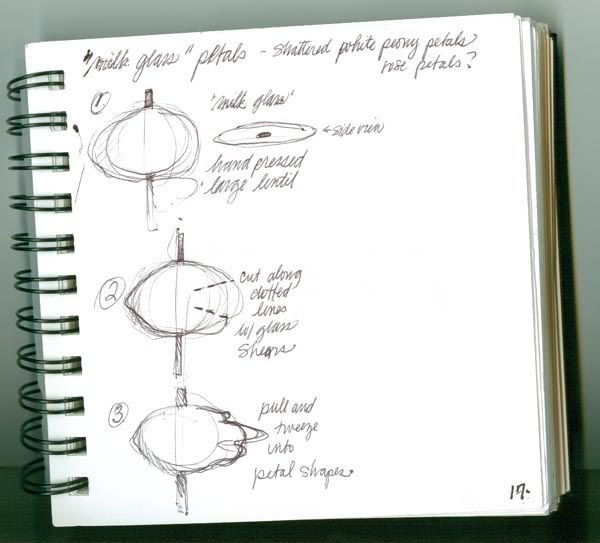 "milk glass" petals - shattered white peony petals
rose petals?
1
"milk glass"
side view
hand pressed
large lentil
2
cut along
dotted
lines
w/ glass
shears
3
pull and
tweeze
into
petal shapes.
17.